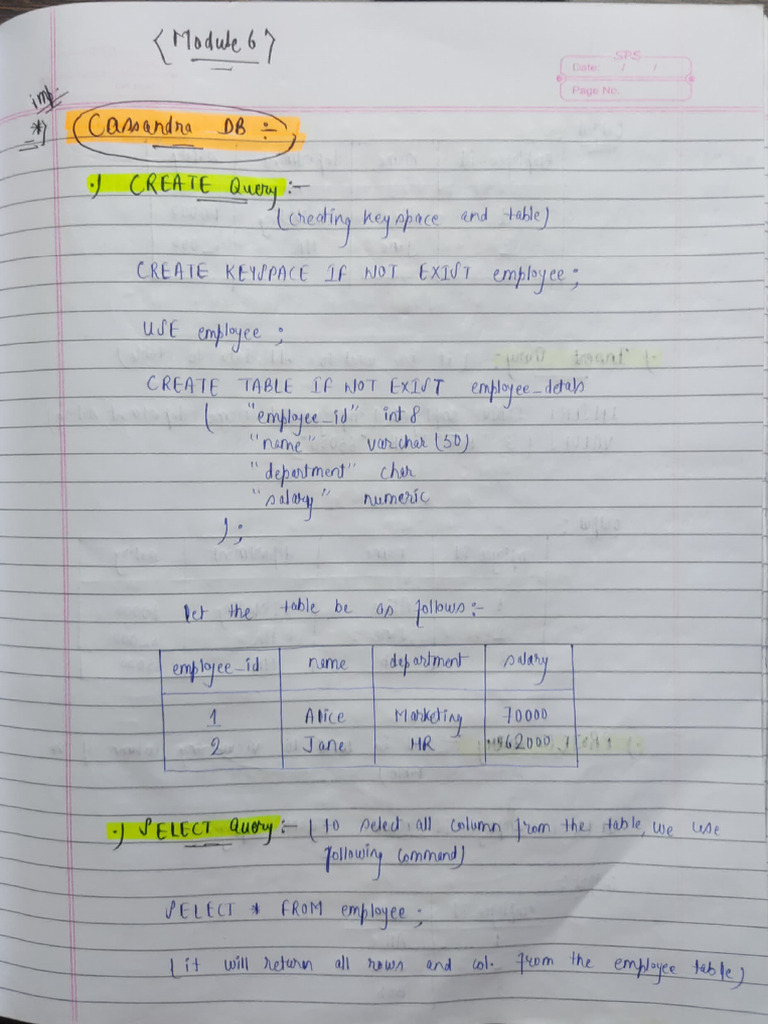 {Module 6}
SPS
Date: / /
Page No.
imp.
*] Cassandra DB :-
•) CREATE Query :-
(creating keyspace and table)
CREATE KEYSPACE IF NOT EXIST employee ;
USE employee ;
CREATE TABLE IF NOT EXIST employee_details
( "employee_id" int 8
"name" varchar (50)
"department" char
"salary" numeric
) ;
let the table be as follows :-
employee_id name department salary
1 Alice Marketing 70000
2 Jane HR 62000
•) SELECT Query :- ( to select all column from the table, we use
following command)
SELECT * FROM employee ;
( it will return all rows and col. from the employee table)